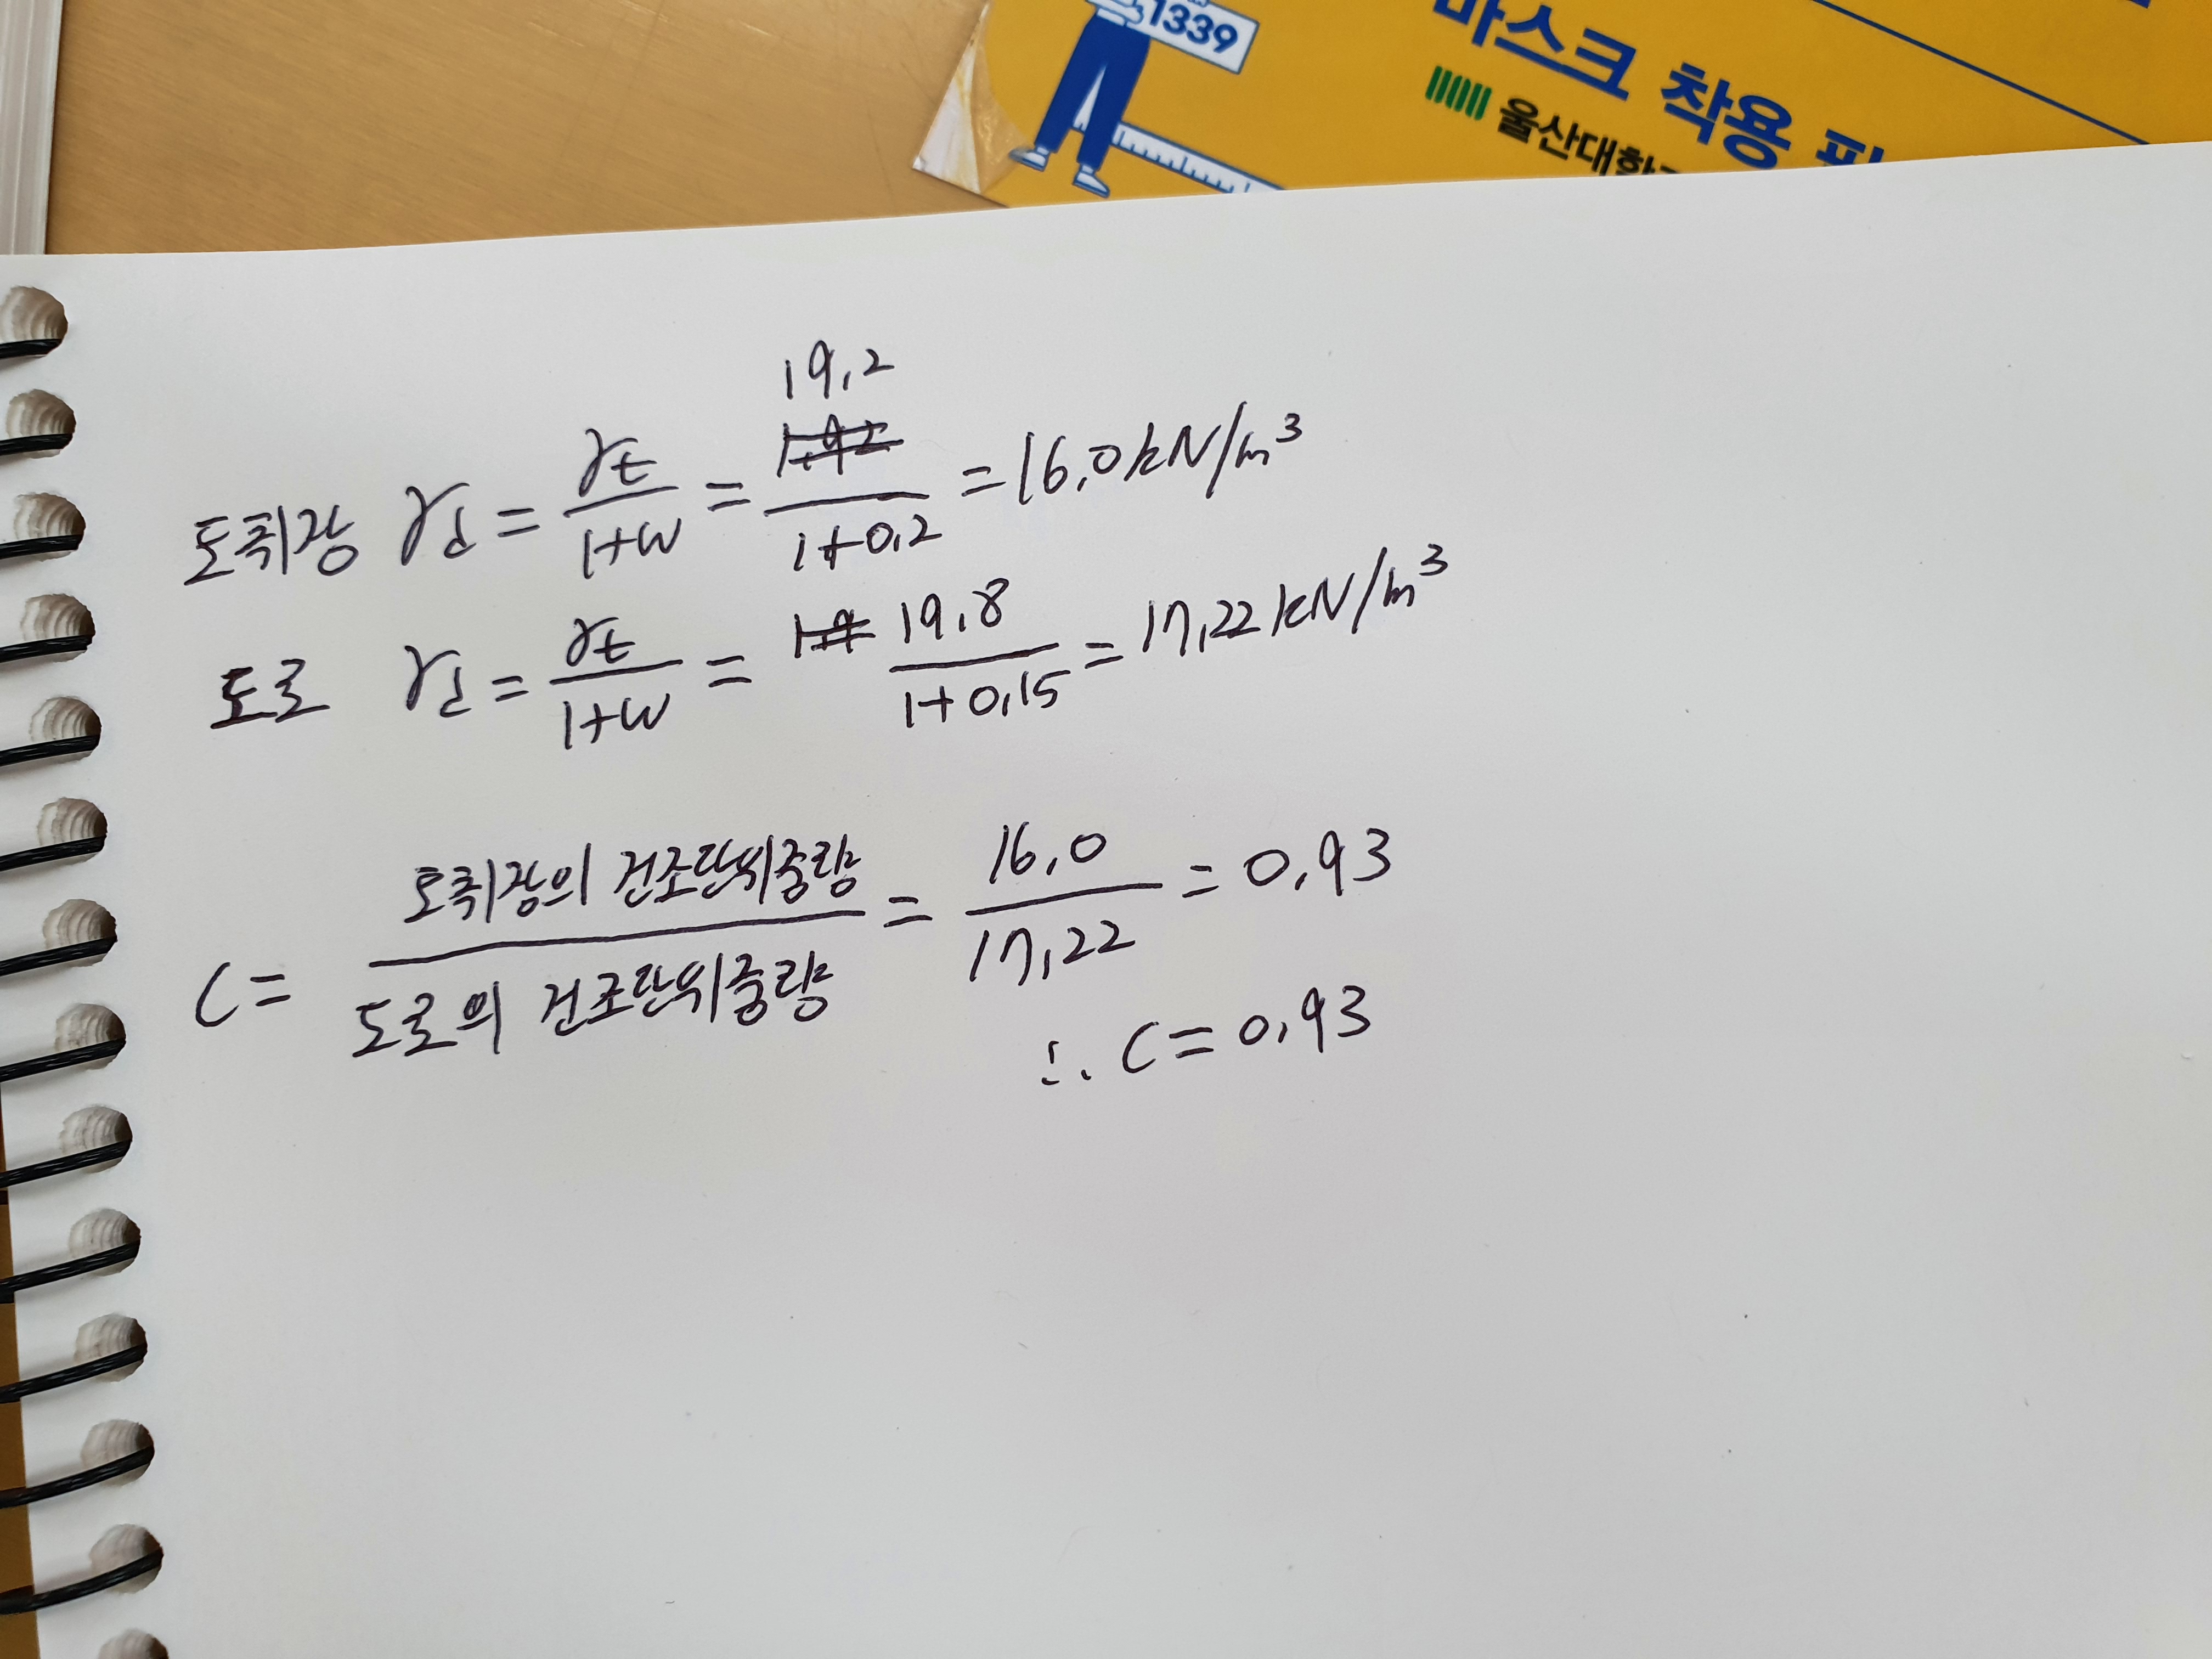 1339
마스크 착용
울산대학
19.2
토취장 γd = γt / 1+w = 1.92 / 1+0.2 = 16.0 kN/m³
도로 γd = γt / 1+w = 1.9 19.8 / 1+0.15 = 17.22 kN/m³
C = 토취장의 건조단위중량 / 도로의 건조단위중량 = 16.0 / 17.22 = 0.93
∴ C = 0.93